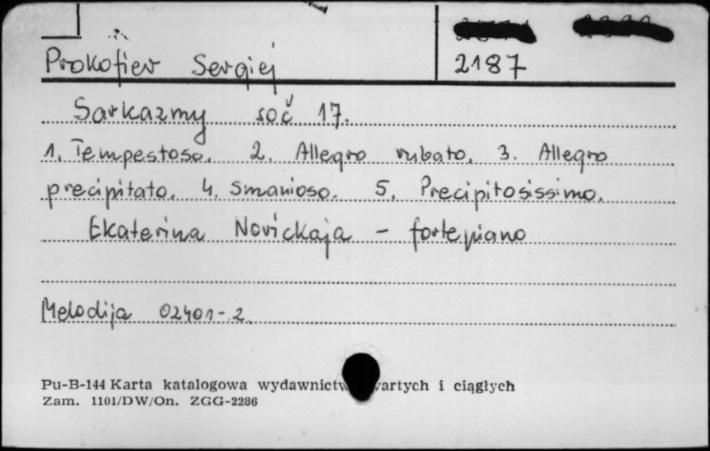 Prokofiev Sergiej 2187
Sarkazmy soč 17.
1. Tempestoso. 2. Allegro rubato. 3. Allegro
precipitato. 4. Smanioso. 5. Precipitosissimo.
Ekaterina Novickaja - fortepiano
Melodija 02401-2
Pu-B-144 Karta katalogowa wydawnictw zwartych i ciągłych
Zam. 1101/DW/On. ZGG-2286